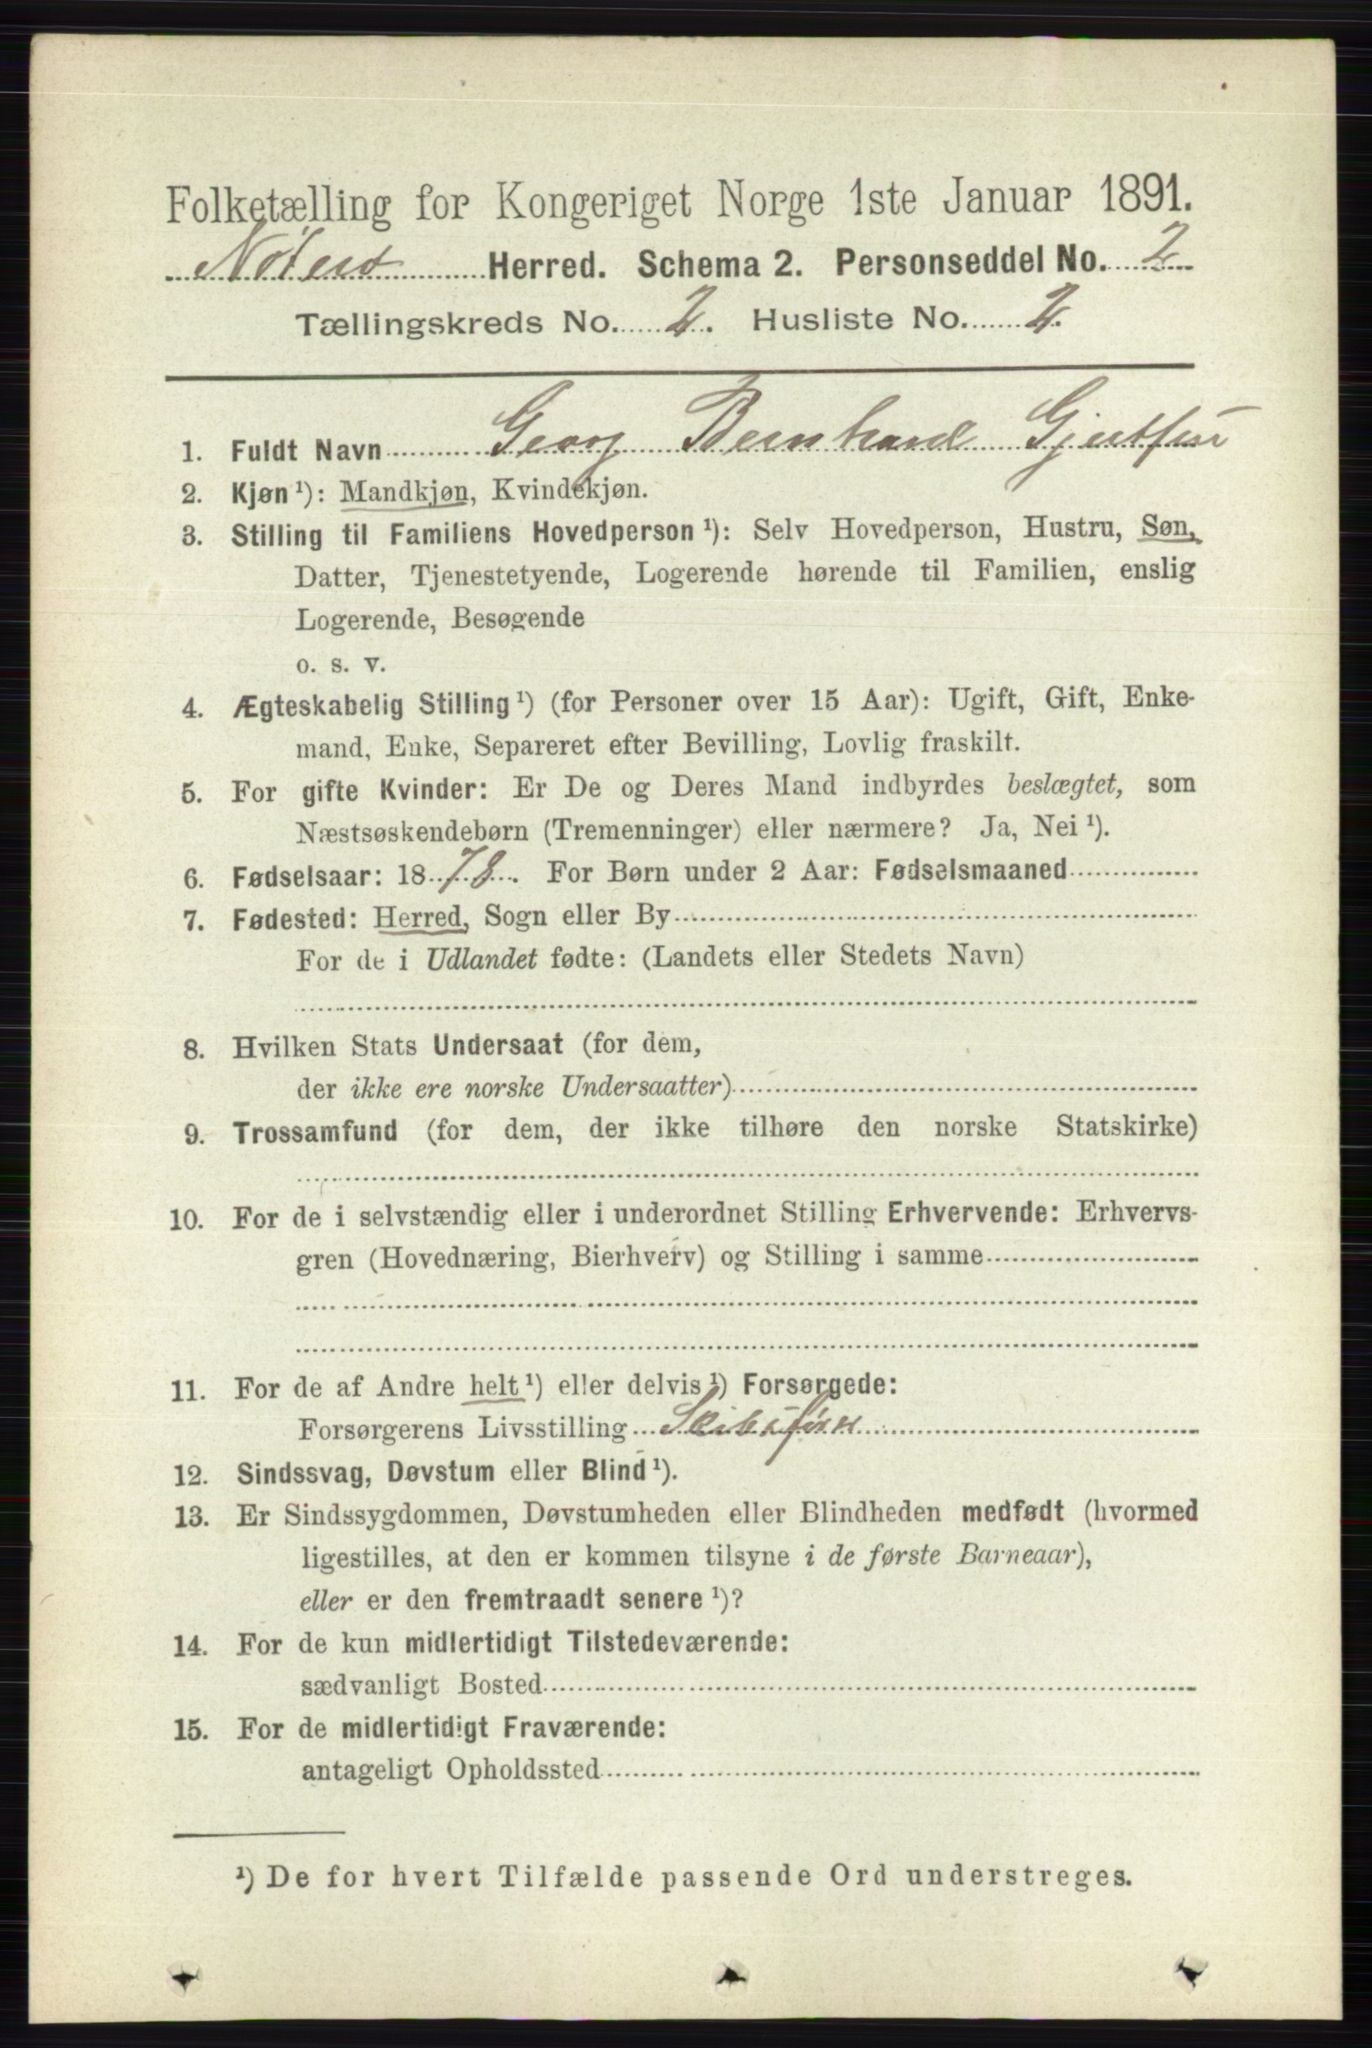 Folketælling for Kongeriget Norge 1ste Januar 1891.
Nøterø Herred. Schema 2. Personseddel No. 2
Tællingskreds No. 2. Husliste No. 2.
1. Fuldt Navn Georg Bernhard
2. Kjøn ¹): Mandkjøn, Kvindekjøn.
3. Stilling til Familiens Hovedperson ¹): Selv Hovedperson, Hustru, Søn,
Datter, Tjenestetyende, Logerende hørende til Familien, enslig
Logerende, Besøgende
o. s. v.
4. Ægteskabelig Stilling ¹) (for Personer over 15 Aar): Ugift, Gift, Enke-
mand, Enke, Separeret efter Bevilling, Lovlig fraskilt.
5. For gifte Kvinder: Er De og Deres Mand indbyrdes beslægtet, som
Næstsøskendebørn (Tremenninger) eller nærmere? Ja, Nei ¹).
6. Fødselsaar: 1878. For Børn under 2 Aar: Fødselsmaaned
7. Fødested: Herred, Sogn eller By
For de i Udlandet fødte: (Landets eller Stedets Navn)
8. Hvilken Stats Undersaat (for dem,
der ikke ere norske Undersaatter)
9. Trossamfund (for dem, der ikke tilhøre den norske Statskirke)
10. For de i selvstændig eller i underordnet Stilling Erhvervende: Erhvervs-
gren (Hovednæring, Bierhverv) og Stilling i samme
11. For de af Andre helt ¹) eller delvis ¹) Forsørgede:
Forsørgerens Livsstilling Skibsfører
12. Sindssvag, Døvstum eller Blind ¹).
13. Er Sindssygdommen, Døvstumheden eller Blindheden medfødt (hvormed
ligestilles, at den er kommen tilsyne i de første Barneaar),
eller er den fremtraadt senere ¹)?
14. For de kun midlertidigt Tilstedeværende:
sædvanligt Bosted
15. For de midlertidigt Fraværende:
antageligt Opholdssted
¹) De for hvert Tilfælde passende Ord understreges.